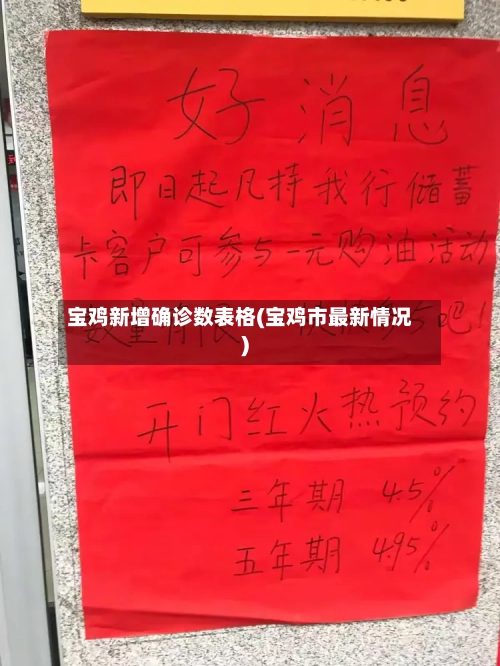 好消息
即日起凡持我行储蓄
卡客户可参与一元购油活动
宝鸡新增确诊数表格(宝鸡市最新情况
)
数量有限
与吧!
开门红火热预约
三年期 4.5%
五年期 4.95%